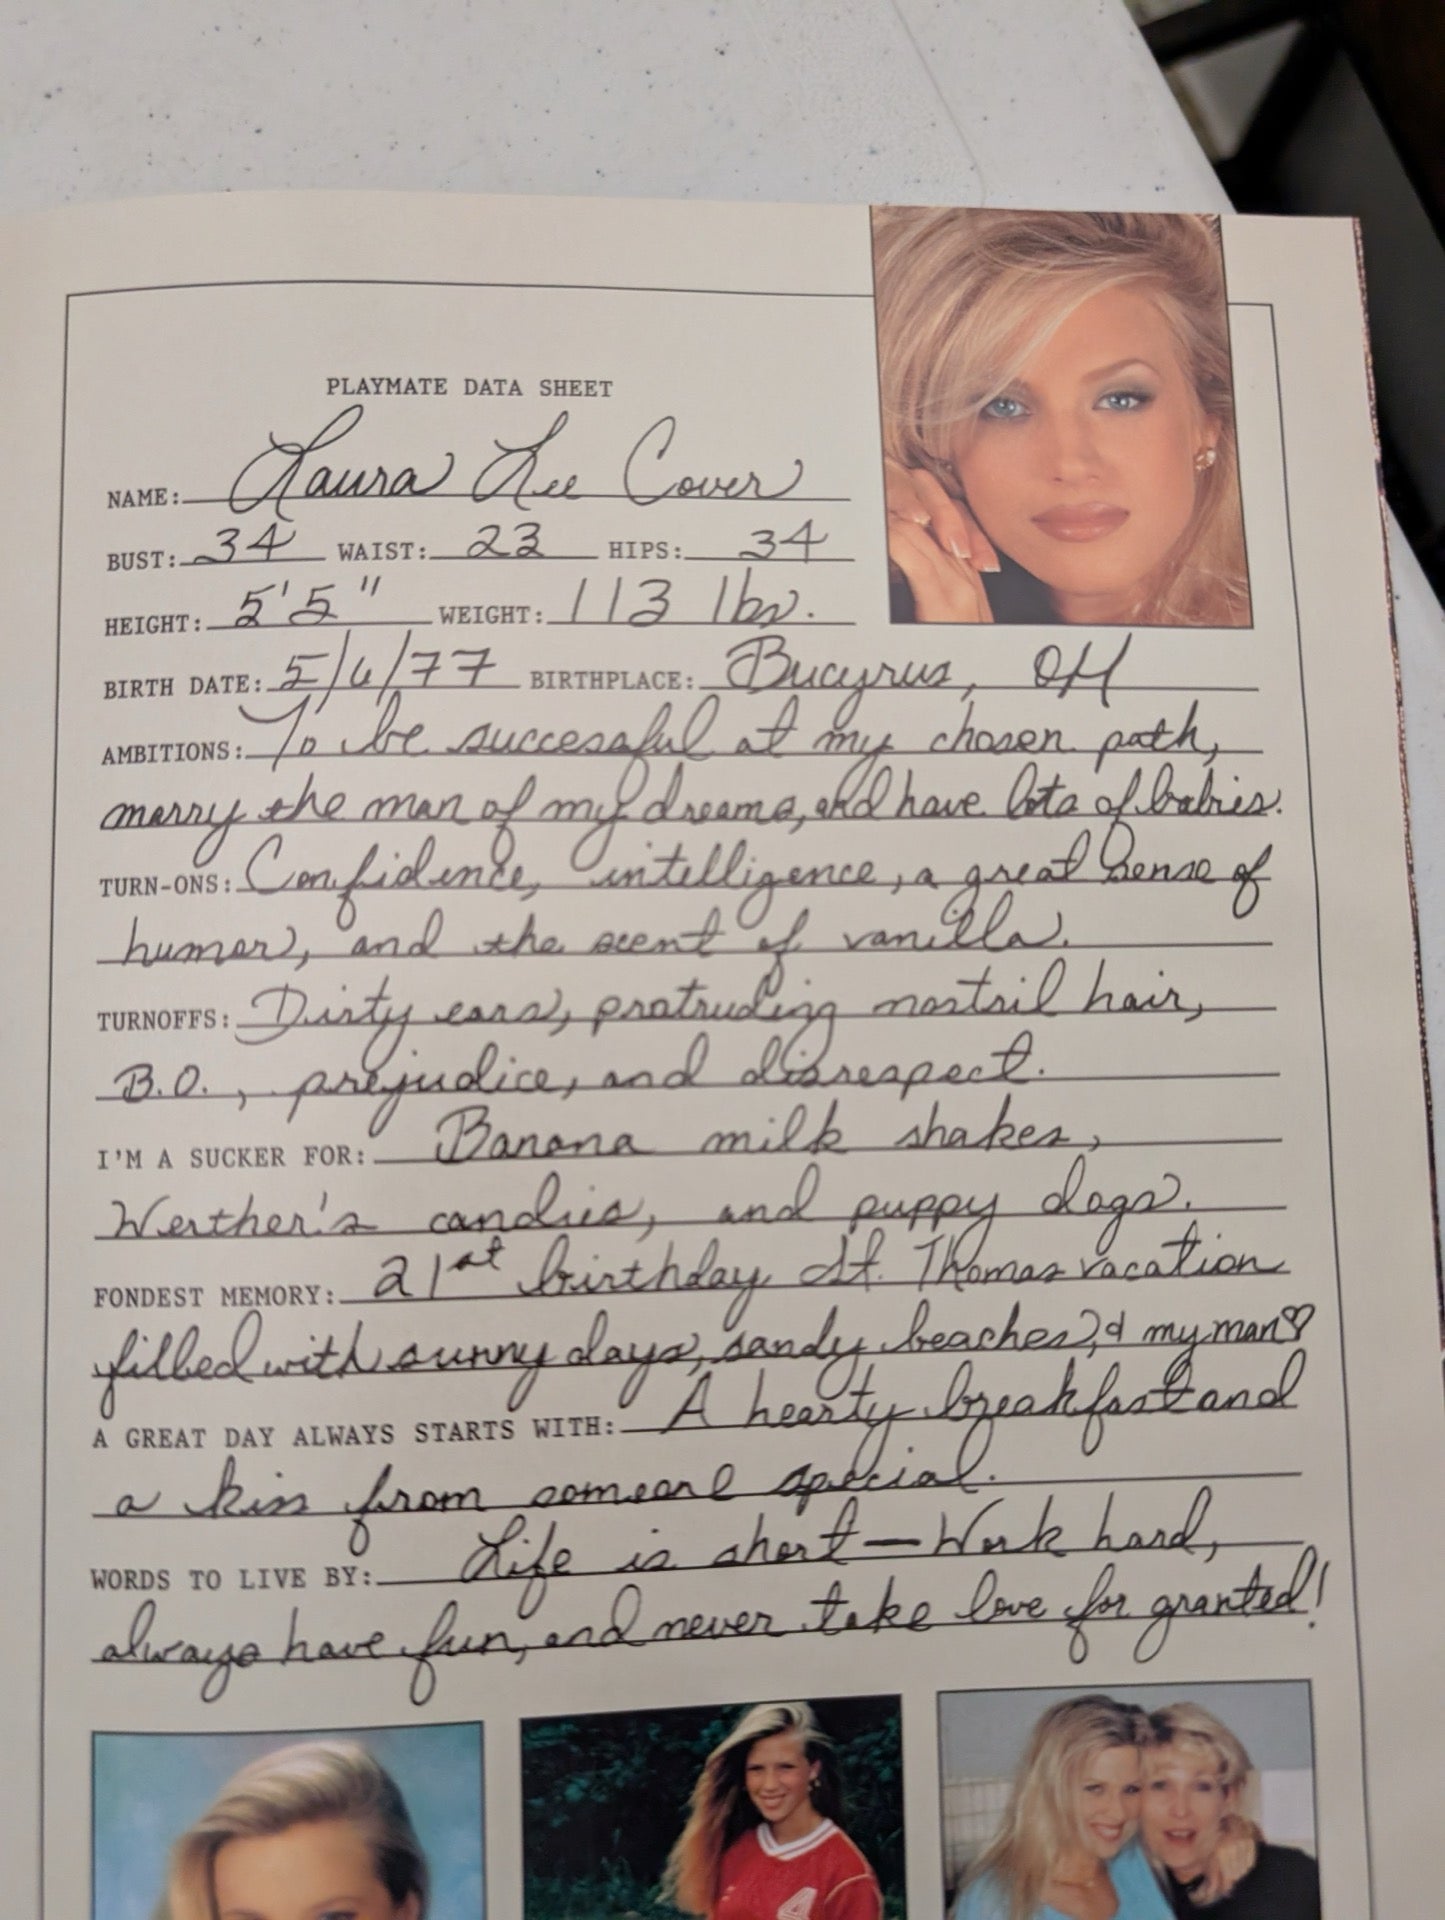 PLAYMATE DATA SHEET
NAME: Laura Lee Cover
BUST: 34 WAIST: 23 HIPS: 34
HEIGHT: 5'5" WEIGHT: 113 lbs.
BIRTH DATE: 5/6/77 BIRTHPLACE: Bucyrus, OH
AMBITIONS: To be successful at my chosen path,
marry the man of my dreams, and have lots of babies.
TURN-ONS: Confidence, intelligence, a great sense of
humor, and the scent of vanilla.
TURNOFFS: Dirty ears, protruding nostril hair,
B.O., prejudice, and disrespect.
I'M A SUCKER FOR: Banana milk shakes,
Werther's candies, and puppy dogs.
FONDEST MEMORY: 21st birthday St. Thomas vacation
filled with sunny days, sandy beaches, & my man♡
A GREAT DAY ALWAYS STARTS WITH: A hearty breakfast and
a kiss from someone special.
WORDS TO LIVE BY: Life is short—Work hard,
always have fun, and never take love for granted!
4